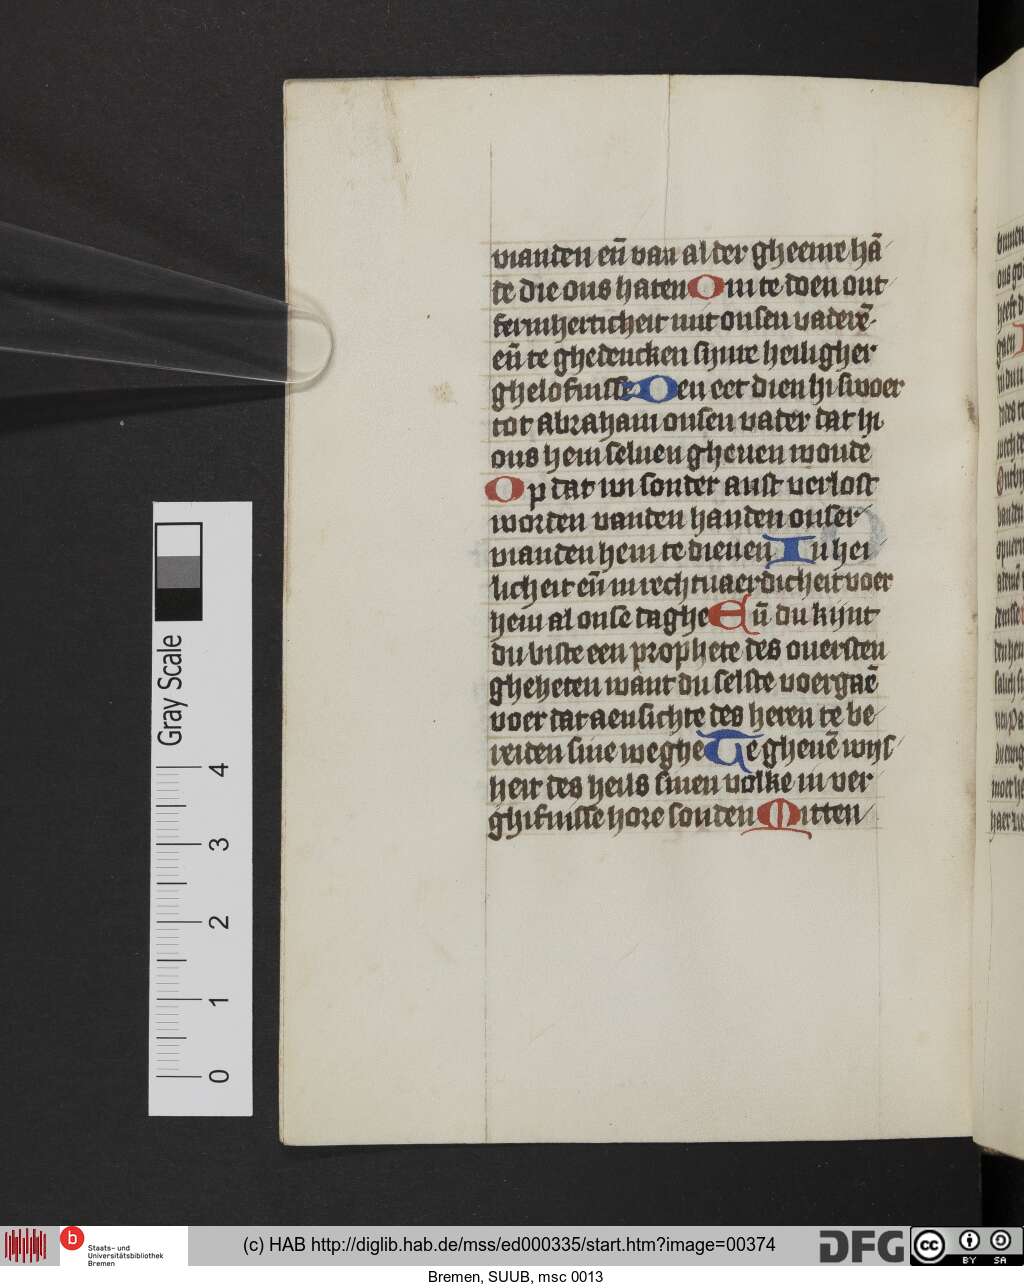 vianden en̄ van al der gheenre hā
de die ons haten Om te doen ont
fermherticheit mit onsen vaderē
en̄ te ghedencken synre heiligher
ghelofnisse Den eet dien hi swoer
tot abraham onsen vader dat hi
ons hem seluen gheuen woude
Op dat wi sonder anst verlost
worden vanden handen onser
vianden hem te dienen In hei
licheit en̄ in rechtuaerdicheit voer
hem al onse daghe En̄ du kijnt
du biste een prophete des ouersten
gheheten want du selste voergaē
voer dat aensichte des heren te be
reiden sine weghe Te gheuē wijs
heit des heils sinen volke in ver
ghifnisse hore sonden Mitten
Gray Scale
4
3
2
1
0
Staats- und
Universitätsbibliothek
Bremen
(c) HAB http://diglib.hab.de/mss/ed000335/start.htm?image=00374
DFG
cc
BY SA
Bremen, SUUB, msc 0013